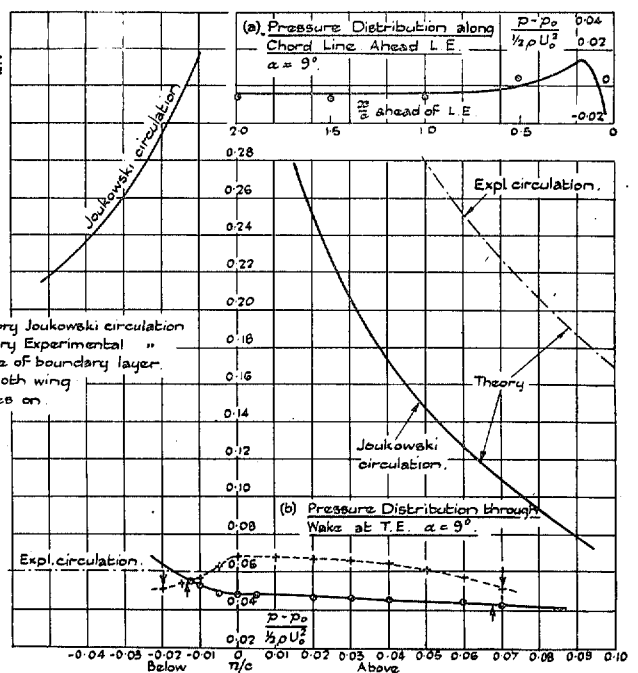 (a) Pressure Distribution along
Chord Line Ahead L.E.
α = 9°.
p - p₀
½ρU₀²
0.04
0.02
0
-0.02
x/c ahead of L.E.
2.0
1.5
1.0
0.5
0
0.28
0.26
0.24
0.22
0.20
0.18
0.16
0.14
0.12
0.10
0.08
0.06
0.04
0.02
Joukowski circulation
Expl. circulation.
ry Joukowski circulation
ry Experimental "
e of boundary layer.
oth wing
es on
Theory
Joukowski
circulation.
(b) Pressure Distribution through
Wake at T.E. α = 9°.
Expl. circulation.
p - p₀
½ρU₀²
-0.04 -0.03 -0.02 -0.01 0 0.01 0.02 0.03 0.04 0.05 0.06 0.07 0.08 0.09 0.10
Below n/c Above